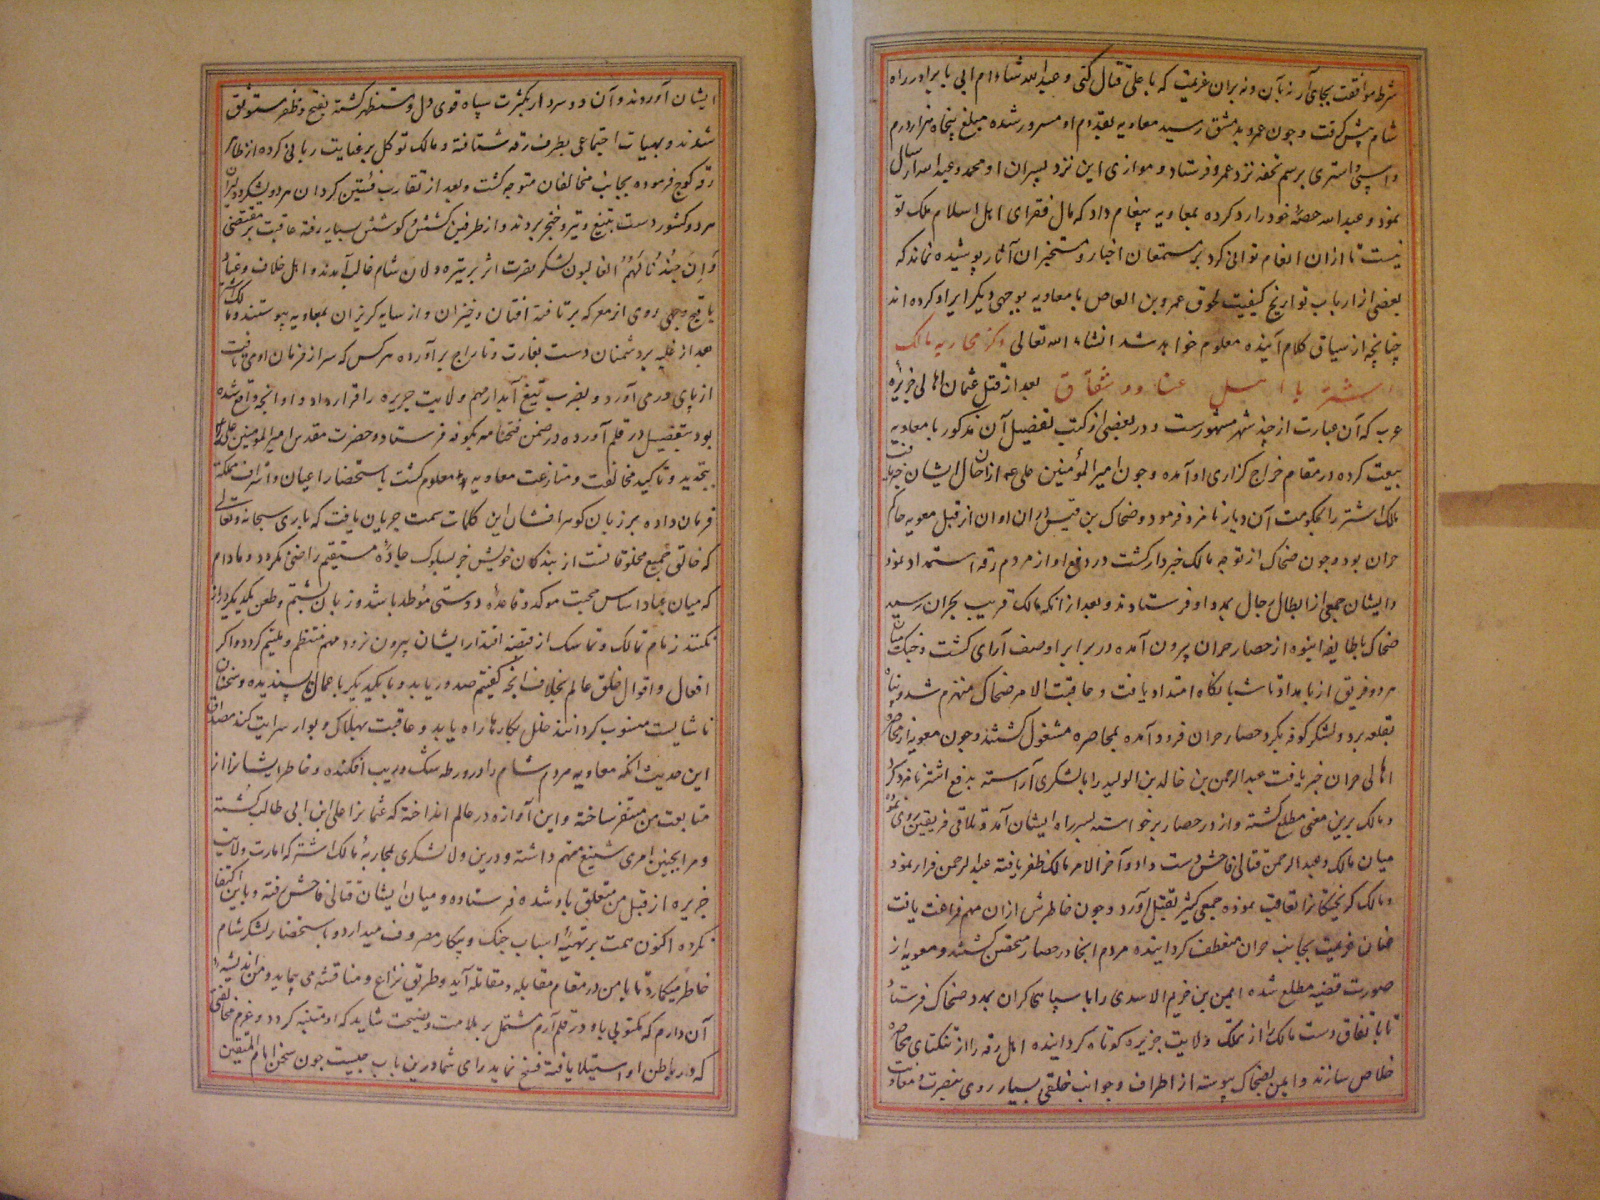 شرط موافقت بجای آر نه بآن ونه بران عزیمت که با علی قتال کنی و عبدالله شاء ام ابی با برادر راه
شام پیش گرفت و چون عمرو بدمشق رسید معاویه بقدوم او مسرور شده مبلغ پنجاه هزار درم
و اسپی و استری برسم تحفه نزد عمرو فرستاد و موازی این نزد پسران او محمد و عبدالله ارسال
نمود و عبدالله حصهٔ خود را رد کرده بمعاویه پیغام داد که مال فقرای اهل اسلام ملک تو
نیست تا ازان انعام توانی کرد بر مستمعان اخبار و مستخبران آثار پوشیده نماند که
بعضی از ارباب تواریخ کیفیت لحوق عمرو بن العاص با معاویه بوجهی دیگر ایراد کرده اند
چنانچه از سیاق کلام آینده معلوم خواهد شد انشاء الله تعالی ذکر محاربه مالک
اشتر با اهل عناد و شقاق بعد از قتل عثمان اهالی جزیرهٔ
عرب که آن عبارت از چند شهر مشهورست و در بعضی از کتب تفصیل آن مذکور با معاویه
بیعت کرده در مقام خراج گزاری او آمده و چون امیرالمؤمنین علی از حال ایشان خبر یافت
مالک اشتر را بحکومت آن دیار نامزد فرمود و ضحاک بن قیس دران اوان از قبل معویه حاکم
حران بود و چون ضحاک از توجه مالک خبردار گشت در دفع او از مردم رقه استمداد نمود
و ایشان جمعی از ابطال رجال بمدد او فرستادند و بعد از انکه مالک قریب بحران رسید
ضحاک با طایفهٔ انبوه از حصار حران بیرون آمده در برابر او صف آرای گشت و جنگ میان
هر دو فریق از بامداد تا شبانگاه امتداد یافت و عاقبت الامر ضحاک منهزم شد و پناه
بقلعه برد و لشکر کوفه بگرد حصار حران فرود آمده بمحاصره مشغول گشتند و چون معویه از محاصرهٔ
اهالی حران خبر یافت عبدالرحمن بن خالد بن الولید را با لشکری آراسته بدفع اشتر نامزد کرد
و مالک برین معنی مطلع گشته و از در حصار برخواسته بسر راه ایشان آمد و تلاقی فریقین روی نمود
میان مالک و عبدالرحمن قتالی فاحش دست داد و آخر الامر مالک ظفر یافته عبدالرحمن فرار نمود
و مالک گریختگانرا تعاقب نموده جمعی کثیر بقتل آورد و چون خاطرش ازان مهم فراغت یافت
عنان عزیمت بجانب حران منعطف گردانیده مردم آنجا در حصار متحصن گشتند و معویه از
صورت قضیه مطلع شده ایمن بن خریم الاسدی را با سپاهی گران بمدد ضحاک فرستاد
تا باتفاق دست مالک را از تملک ولایت جزیره کوتاه گردانیده اهل رقه را از تنگنای محاصره
خلاص سازند و ایمن بضحاک پیوسته از اطراف و جوانب خلقی بسیار روی بنصرت و معاونت
ایشان آوردند و آن دو سردار بکثرت سپاه قوی دل و مستظهر گشته بفتح و ظفر مستوثق
شدند و بهیات اجتماعی بطرف رقه شتافته و مالک توکل بر عنایت ربانی کرده از ظاهر
رقه کوچ فرموده بجانب مخالفان متوجه گشت و بعد از تقارب فئتین گردان هر دو لشکر و دلیران
هر دو کشور دست بتیغ و تیر و خنجر بردند و از طرفین کشش و کوشش بسیار رفته عاقبت بر مقتضی
وَاِنَّ جُندَنا لَهُمُ الغالبون لشکر نصرت اثر بر تیره دلان شام غالب آمدند و اهل خلاف و عناد
باقبح وجهی روی از معرکه برتافته افتان و خیزان و از سایه گریزان بمعاویه پیوستند و مالک
بعد از غلبه بر دشمنان دست بغارت و تاراج برآورده هر کس که سر از فرمان او می تافت
از پای در می آورد و بضرب تیغ آبدار مهم ولایت جزیره را قرار داد و انچه واقع شده
بود بتفصیل در قلم آورده در ضمن فتحنامه بکوفه فرستاد و حضرت مقدس امیرالمؤمنین علی را
بتجدید و تاکید مخالفت و منازعت معاویه معلوم گشت باستحضار اعیان و اشراف مملکت
فرمان داده بر زبان گوهر افشان این کلمات سمت جریان یافت که باری سبحانه و تعالی
که خالق جمیع مخلوقاتست از بندگان خویش جز بسلوک جادهٔ مستقیم راضی نگردد و مادام
که میان عباد اساس محبت موکد و قاعدهٔ دوستی موطد باشد و زبان بشتم و طعن یکدیگر دراز
نکنند زمام تمالک و تماسک از قبضهٔ اقتدار ایشان بیرون نرود مهم منتظم و ملتیم گردد و اگر
افعال و اقوال خلق عالم بخلاف انچه گفتیم صدور یابد و با یکدیگر باعمال ناپسندیده و سخنان
ناشایست منسوب گردانند خلل بکارها راه یابد و عاقبت بهلاک و بوار سرایت کند مصداق
این حدیث انکه معاویه مردم شام را در ورطه شک و ریب افکنده و خاطر ایشانرا از
متابعت من متنفر ساخته و این آوازه در عالم انداخته که عثمانرا علی ابن ابی طالب کشته
و مرا بچنین امری شنیع متهم داشته و درین ولا لشکری بمحاربهٔ مالک اشتر که امارت ولایت
جزیره از قبل من متعلق باو شده فرستاده و میان ایشان قتالی فاحش رفته و باین اکتفا
نکرده اکنون همت بر تهیهٔ اسباب جنگ و پیکار مصروف میدارد و باستحضار لشکر شام
خاطر میگمارد تا با من در مقام مقابله و مقاتله آید و طریق نزاع و مناقشه می پیماید و من اندیشهٔ
آن دارم که مکتوبی باو در قلم آرم مشتمل بر ملامت و نصیحت شاید که او متنبه گردد و عزم مخالفتی
که در باطن او استیلا یافته فسخ نماید رای شما درین باب چیست چون سخن امام المتقین